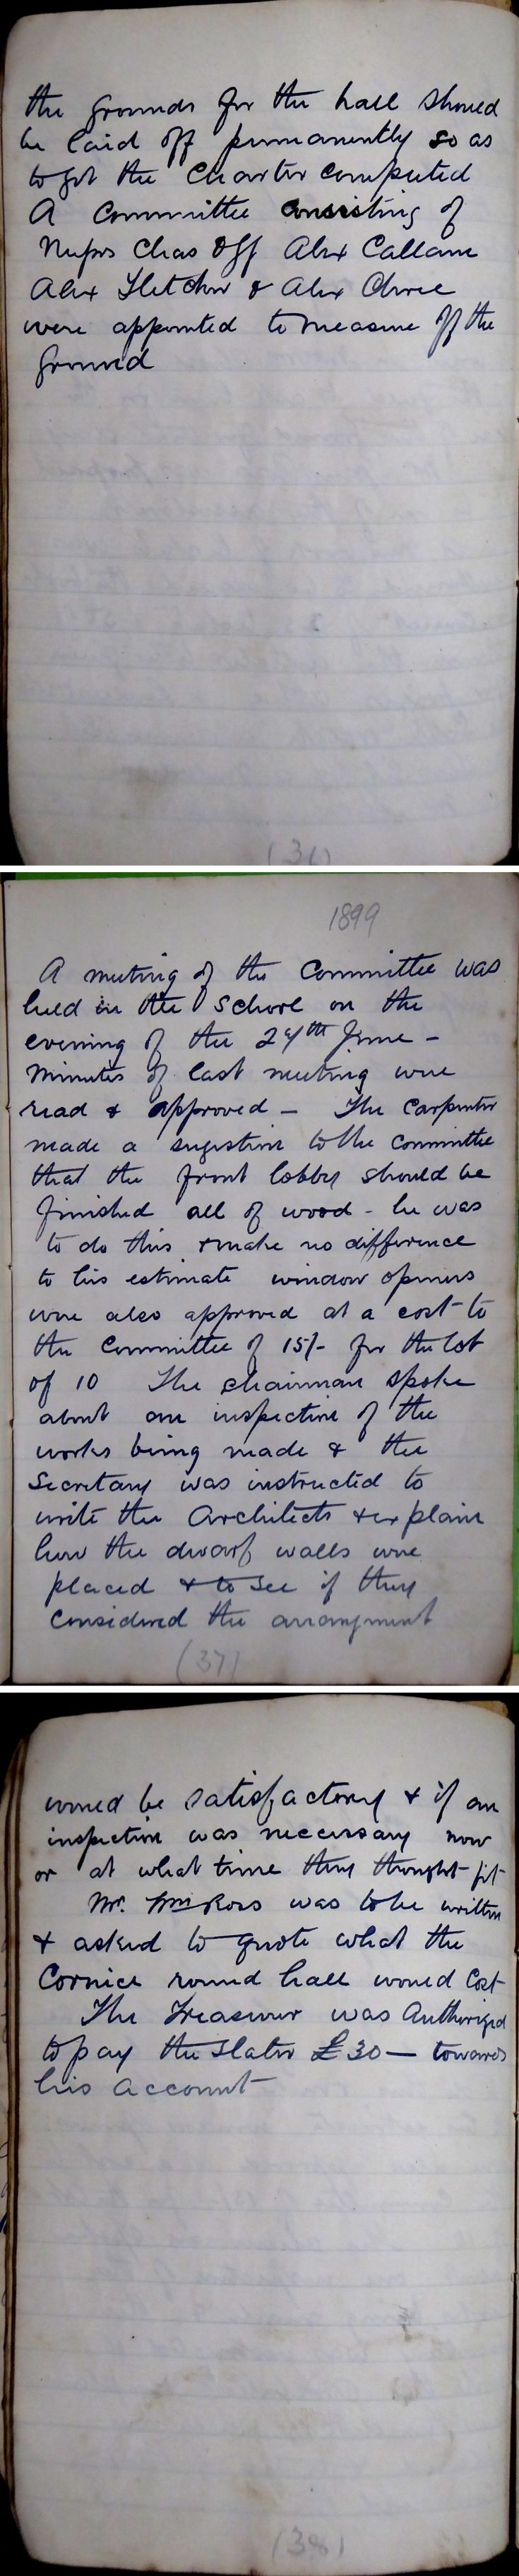 the grounds for the hall should
be laid off permanently so as
to get the Charter completed
A Committee consisting of
Messrs Chas Off Alex Callam
Alex Fletcher & Alex
were appointed to measure off the
ground
1899
A meeting of the Committee was
held in the School on the
evening of the June -
Minutes of last meeting were
read & approved - The Carpenter
made a sugestion to the committee
that the front lobby should be
finished all of wood - he was
to do this & make no difference
to his estimate window openers
were also approved at a cost to
the Committee of 15/- for the lot
of 10 The chairman spoke
about an inspection of the
works being made & the
Secretary was instructed to
write the Architects & explain
how the dwarf walls were
placed & to see if they
considered the arrangment
(37)
would be satisfactory & if an
inspection was necessary now
or at what time they thought fit
Mr. Wm Ross was to be written
& asked to quote what the
Cornice round hall would Cost
The Treasurer was Authorized
to pay the slater £30 - towards
his account
(38)